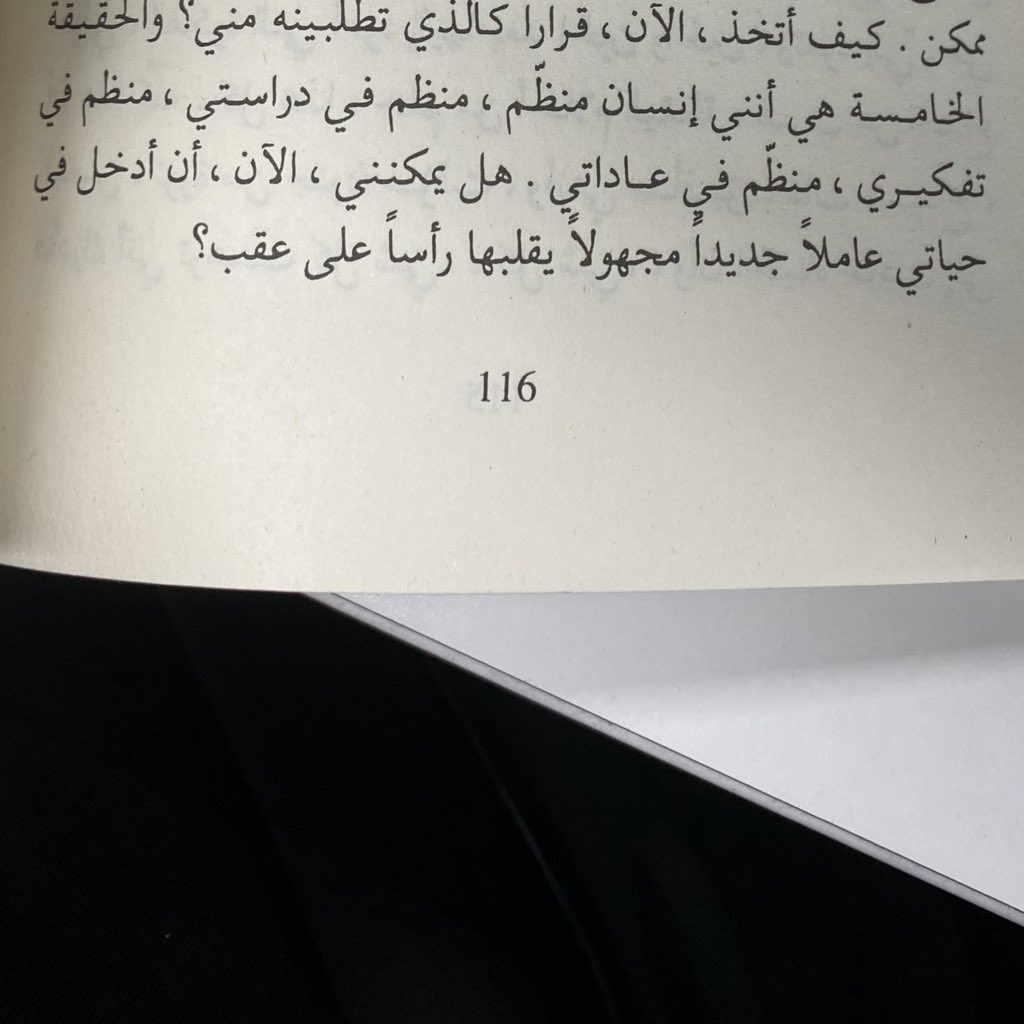 ممكن . كيف أتخذ ، الآن ، قرارا كالذي تطلبينه مني؟ والحقيقة
الخامسة هي أنني إنسان منظّم ، منظم في دراستي ، منظم في
تفكيري ، منظّم في عاداتي . هل يمكنني ، الآن ، أن أدخل في
حياتي عاملاً جديداً مجهولاً يقلبها رأساً على عقب؟
116